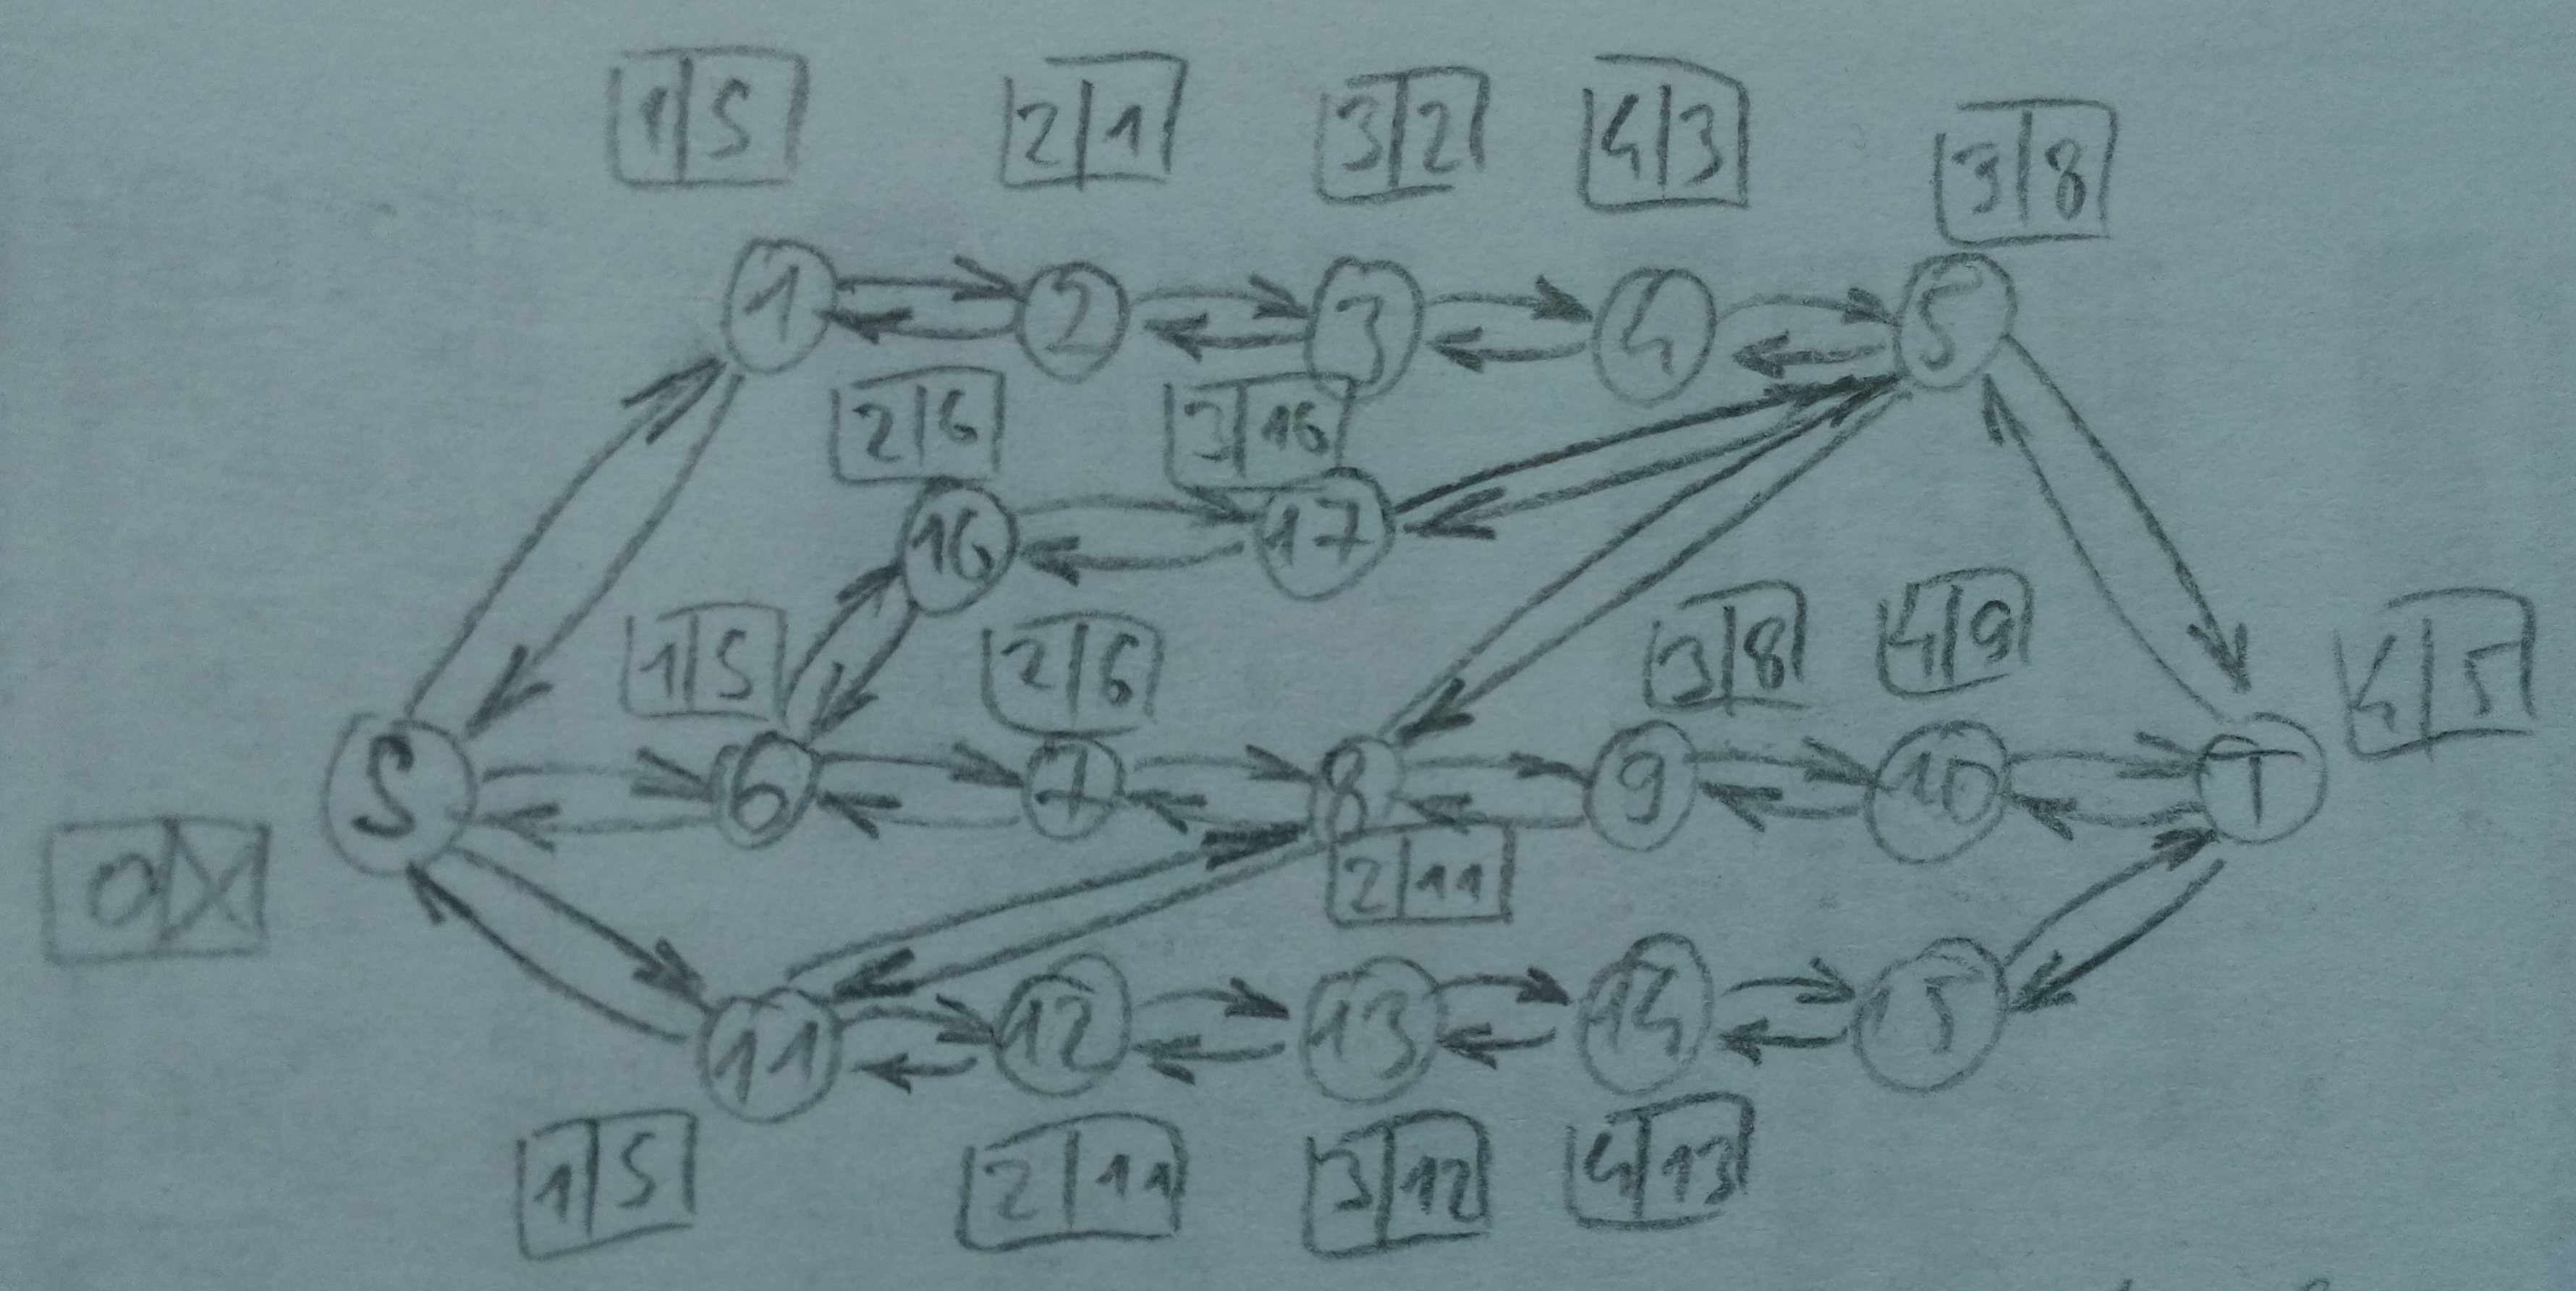 1|S 2|1 3|2 4|3 3|8
1 2 3 4 5
2|6 3|16
16 17
1|S 2|6 3|8 4|9 4|5
S 6 7 8 9 10 T
0|X 2|11
11 12 13 14 15
1|S 2|11 3|12 4|13